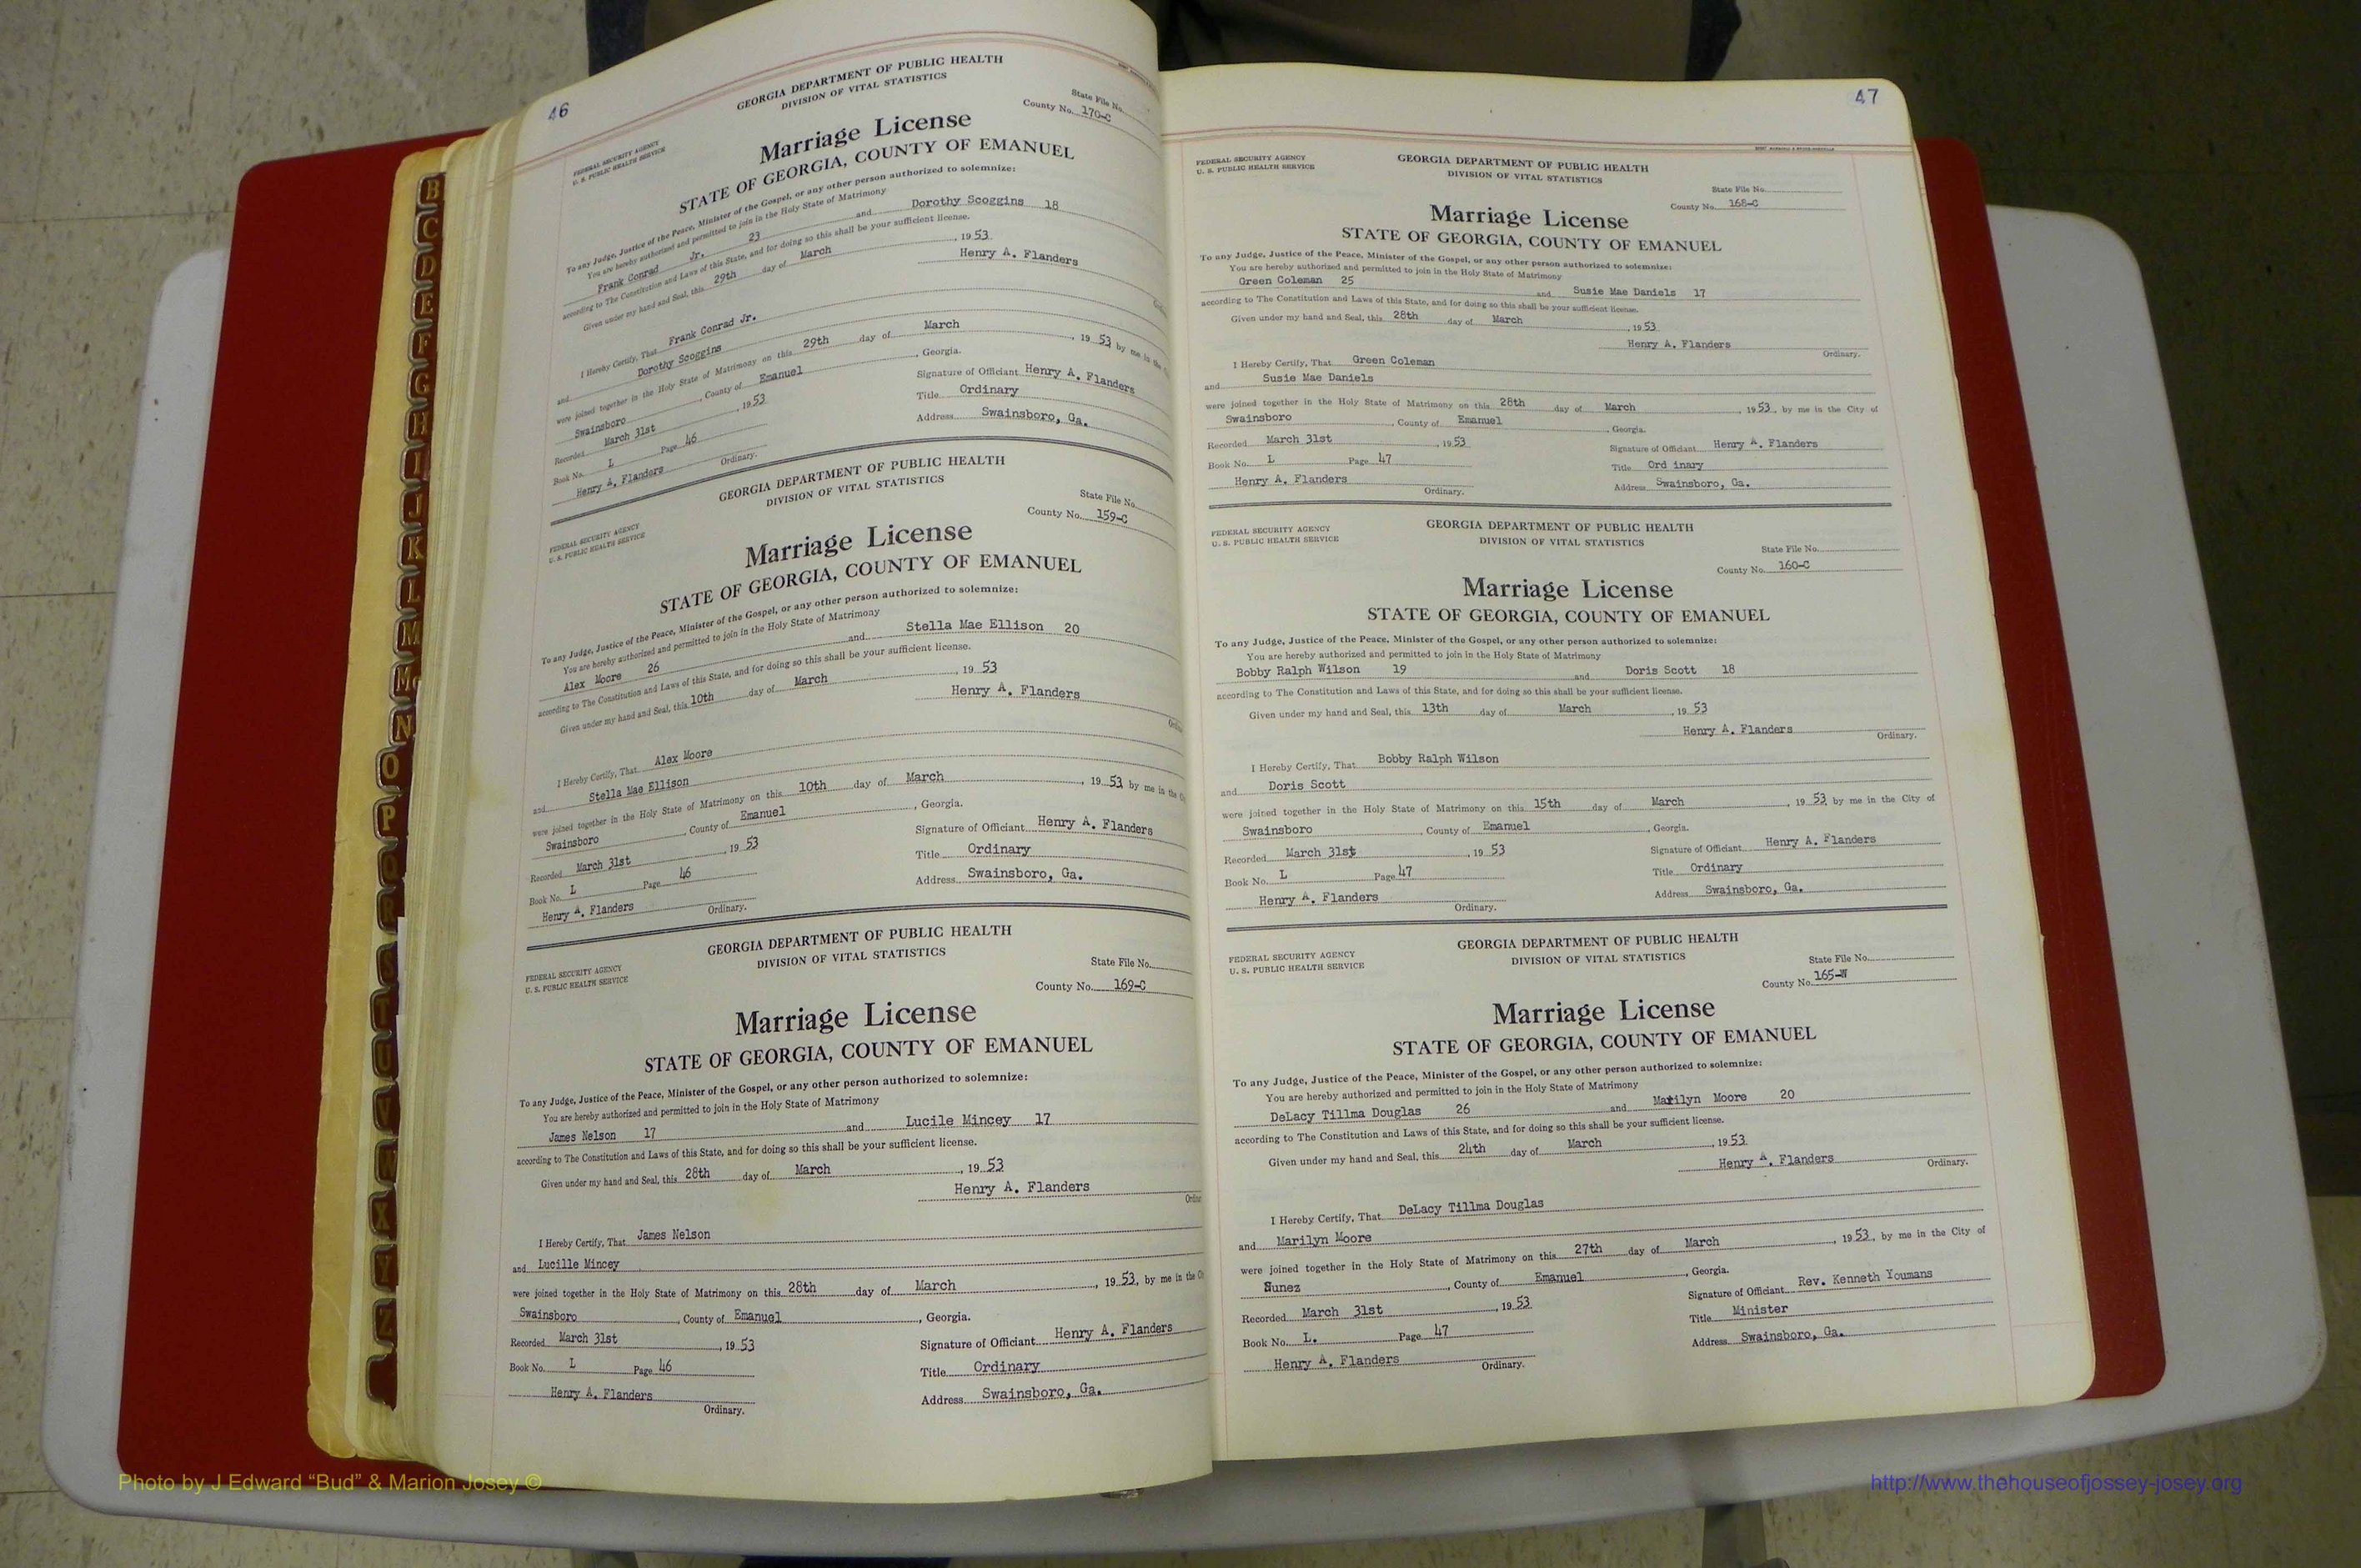 46
GEORGIA DEPARTMENT OF PUBLIC HEALTH
DIVISION OF VITAL STATISTICS
FEDERAL SECURITY AGENCY
U. S. PUBLIC HEALTH SERVICE
State File No.
County No. 170-C
Marriage License
STATE OF GEORGIA, COUNTY OF EMANUEL
To any Judge, Justice of the Peace, Minister of the Gospel, or any other person authorized to solemnize:
You are hereby authorized and permitted to join in the Holy State of Matrimony
Frank Conrad Jr. 23 and Dorothy Scoggins 18
according to The Constitution and Laws of this State, and for doing so this shall be your sufficient license.
Given under my hand and Seal, this 29th day of March, 1953
Henry A. Flanders
I Hereby Certify, That Frank Conrad Jr.
and Dorothy Scoggins
were joined together in the Holy State of Matrimony on this 29th day of March, 1953 by me in the
Swainsboro, County of Emanuel, Georgia.
Recorded March 31st, 1953 Signature of Officiant Henry A. Flanders
Book No. L Page 46 Title Ordinary
Henry A. Flanders Address Swainsboro, Ga.
Ordinary.
GEORGIA DEPARTMENT OF PUBLIC HEALTH
DIVISION OF VITAL STATISTICS
FEDERAL SECURITY AGENCY
U. S. PUBLIC HEALTH SERVICE
State File No.
County No. 159-C
Marriage License
STATE OF GEORGIA, COUNTY OF EMANUEL
To any Judge, Justice of the Peace, Minister of the Gospel, or any other person authorized to solemnize:
You are hereby authorized and permitted to join in the Holy State of Matrimony
Alex Moore 26 and Stella Mae Ellison 20
according to The Constitution and Laws of this State, and for doing so this shall be your sufficient license.
Given under my hand and Seal, this 10th day of March, 1953
Henry A. Flanders
I Hereby Certify, That Alex Moore
and Stella Mae Ellison
were joined together in the Holy State of Matrimony on this 10th day of March, 1953 by me in the
Swainsboro, County of Emanuel, Georgia.
Recorded March 31st, 1953 Signature of Officiant Henry A. Flanders
Book No. L Page 46 Title Ordinary
Henry A. Flanders Address Swainsboro, Ga.
Ordinary.
GEORGIA DEPARTMENT OF PUBLIC HEALTH
DIVISION OF VITAL STATISTICS
FEDERAL SECURITY AGENCY
U. S. PUBLIC HEALTH SERVICE
State File No.
County No. 169-C
Marriage License
STATE OF GEORGIA, COUNTY OF EMANUEL
To any Judge, Justice of the Peace, Minister of the Gospel, or any other person authorized to solemnize:
You are hereby authorized and permitted to join in the Holy State of Matrimony
James Nelson 17 and Lucile Mincey 17
according to The Constitution and Laws of this State, and for doing so this shall be your sufficient license.
Given under my hand and Seal, this 28th day of March, 1953
Henry A. Flanders
I Hereby Certify, That James Nelson
and Lucille Mincey
were joined together in the Holy State of Matrimony on this 28th day of March, 1953, by me in the
Swainsboro, County of Emanuel, Georgia.
Recorded March 31st, 1953 Signature of Officiant Henry A. Flanders
Book No. L Page 46 Title Ordinary
Henry A. Flanders Address Swainsboro, Ga.
Ordinary.
47
FEDERAL SECURITY AGENCY
U. S. PUBLIC HEALTH SERVICE
GEORGIA DEPARTMENT OF PUBLIC HEALTH
DIVISION OF VITAL STATISTICS
State File No.
County No. 168-C
Marriage License
STATE OF GEORGIA, COUNTY OF EMANUEL
To any Judge, Justice of the Peace, Minister of the Gospel, or any other person authorized to solemnize:
You are hereby authorized and permitted to join in the Holy State of Matrimony
Green Coleman 25 and Susie Mae Daniels 17
according to The Constitution and Laws of this State, and for doing so this shall be your sufficient license.
Given under my hand and Seal, this 28th day of March, 1953
Henry A. Flanders
Ordinary.
I Hereby Certify, That Green Coleman
and Susie Mae Daniels
were joined together in the Holy State of Matrimony on this 28th day of March, 1953, by me in the City of
Swainsboro, County of Emanuel, Georgia.
Recorded March 31st, 1953 Signature of Officiant Henry A. Flanders
Book No. L Page 47 Title Ord inary
Henry A. Flanders Address Swainsboro, Ga.
Ordinary.
FEDERAL SECURITY AGENCY
U. S. PUBLIC HEALTH SERVICE
GEORGIA DEPARTMENT OF PUBLIC HEALTH
DIVISION OF VITAL STATISTICS
State File No.
County No. 160-C
Marriage License
STATE OF GEORGIA, COUNTY OF EMANUEL
To any Judge, Justice of the Peace, Minister of the Gospel, or any other person authorized to solemnize:
You are hereby authorized and permitted to join in the Holy State of Matrimony
Bobby Ralph Wilson 19 and Doris Scott 18
according to The Constitution and Laws of this State, and for doing so this shall be your sufficient license.
Given under my hand and Seal, this 13th day of March, 1953
Henry A. Flanders
Ordinary.
I Hereby Certify, That Bobby Ralph Wilson
and Doris Scott
were joined together in the Holy State of Matrimony on this 15th day of March, 1953, by me in the City of
Swainsboro, County of Emanuel, Georgia.
Recorded March 31st, 1953 Signature of Officiant Henry A. Flanders
Book No. L Page 47 Title Ordinary
Henry A. Flanders Address Swainsboro, Ga.
Ordinary.
FEDERAL SECURITY AGENCY
U. S. PUBLIC HEALTH SERVICE
GEORGIA DEPARTMENT OF PUBLIC HEALTH
DIVISION OF VITAL STATISTICS
State File No.
County No. 165-W
Marriage License
STATE OF GEORGIA, COUNTY OF EMANUEL
To any Judge, Justice of the Peace, Minister of the Gospel, or any other person authorized to solemnize:
You are hereby authorized and permitted to join in the Holy State of Matrimony
DeLacy Tillma Douglas 26 and Marilyn Moore 20
according to The Constitution and Laws of this State, and for doing so this shall be your sufficient license.
Given under my hand and Seal, this 24th day of March, 1953
Henry A. Flanders
Ordinary.
I Hereby Certify, That DeLacy Tillma Douglas
and Marilyn Moore
were joined together in the Holy State of Matrimony on this 27th day of March, 1953, by me in the City of
Nunez, County of Emanuel, Georgia.
Recorded March 31st, 1953 Signature of Officiant Rev. Kenneth Youmans
Book No. L. Page 47 Title Minister
Henry A. Flanders Address Swainsboro, Ga.
Ordinary.
B
C
D
E
F
G
H
I
J
K
L
M
Mc
N
O
P
U
V
X
Y
Z
Photo by J Edward “Bud” & Marion Josey ©
http://www.thehouseofjossey-josey.org